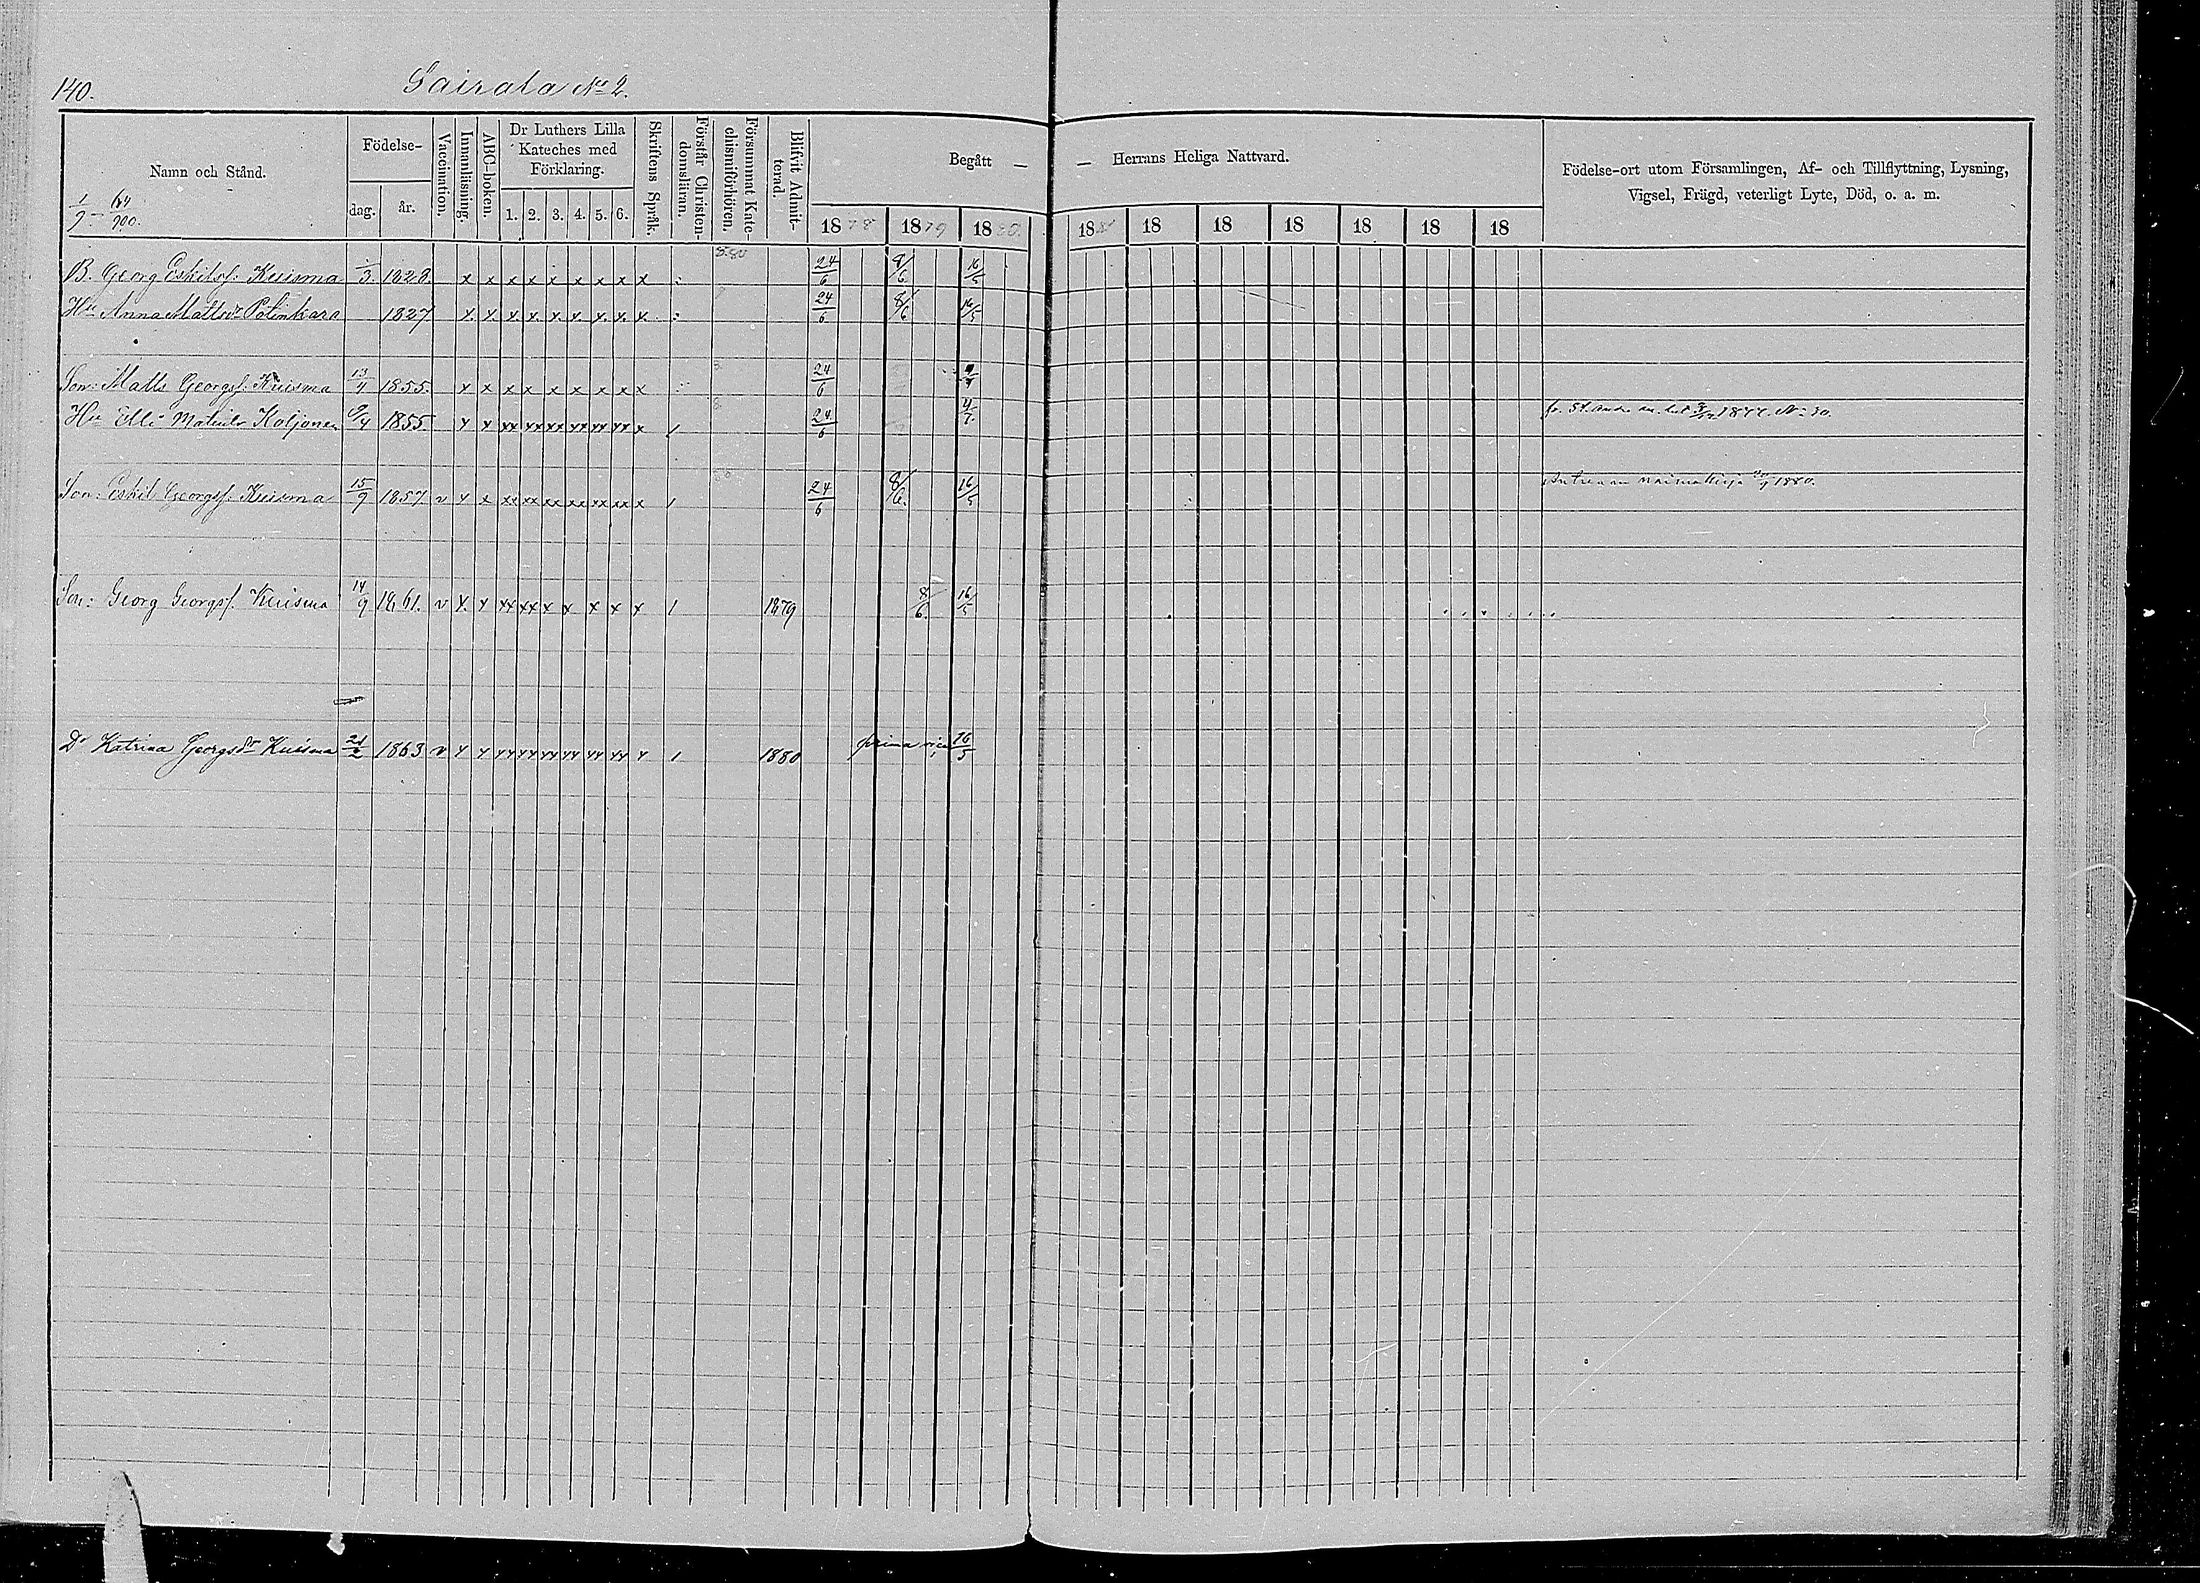 140. Sairala No 2.
Namn och Stånd.
Födelse-
dag.
år.
Vaccination.
Innanläsning.
ABC-boken.
Dr Luthers Lilla
Kateches med
Förklaring.
1. 2. 3. 4. 5. 6.
Skriftens Språk.
Förstår Christen-
domsläran.
Försummat Kate-
chismiförhören.
Blifvit Admit-
terad.
Begått — — Herrans Heliga Nattvard.
1878 1879 1880. 18 18 18 18 18 18 18
Födelse-ort utom Församlingen, Af- och Tillflyttning, Lysning,
Vigsel, Frägd, veterligt Lyte, Död, o. a. m.
B. Georg Eskilsf. Kuisma 1/3 1828. x x x x x x x x x 24/6 8/6 16/5
Hu Anna Mattsdr 1827 x x x x x x x x x 24/6 8/6 16/5
Son: Matts Georgsf. Kuisma 13/4 1855. x x x x x x x x x 24/6
Hu Elli Koljonen 9/4 1855. x x xx xx xx xx xx xx x 1 24/6 4/7
Son: Eskil Georgsf. Kuisma 15/9 1857 v x x xx xx xx xx xx xx x 1 24/6 8/6. 16/5 1880.
Son: Georg Georgsf. Kuisma 14/9 1861. v x x xx xx x x x x x 1 1879 8/6. 16/5
Dr Katrina Georgsdr Kuisma 21/2 1863 v x x xx xx xx xx xx xx x 1 1880 prima vice 16/5